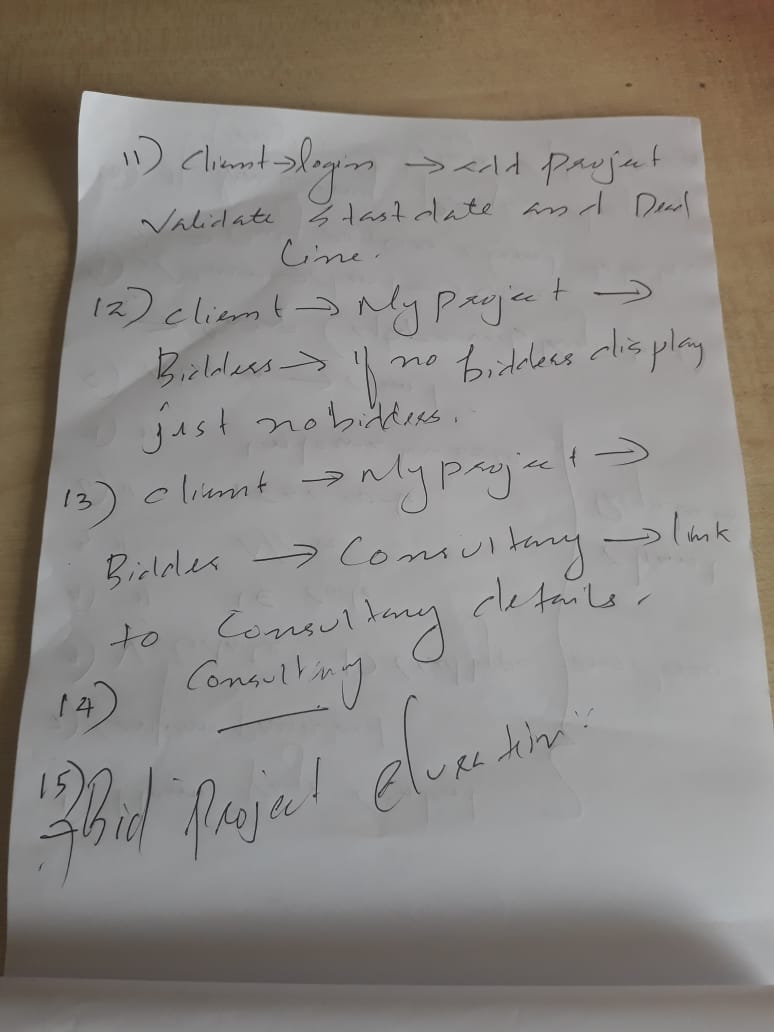 11) Client → login → add project
Validate start date and Dead
line.
12) client → My project →
Bidders → if no bidders display
just no bidders.
13) client → My project →
Bidder → Consultany → link
to Consultany details.
14) Consulting
15) Bid Project